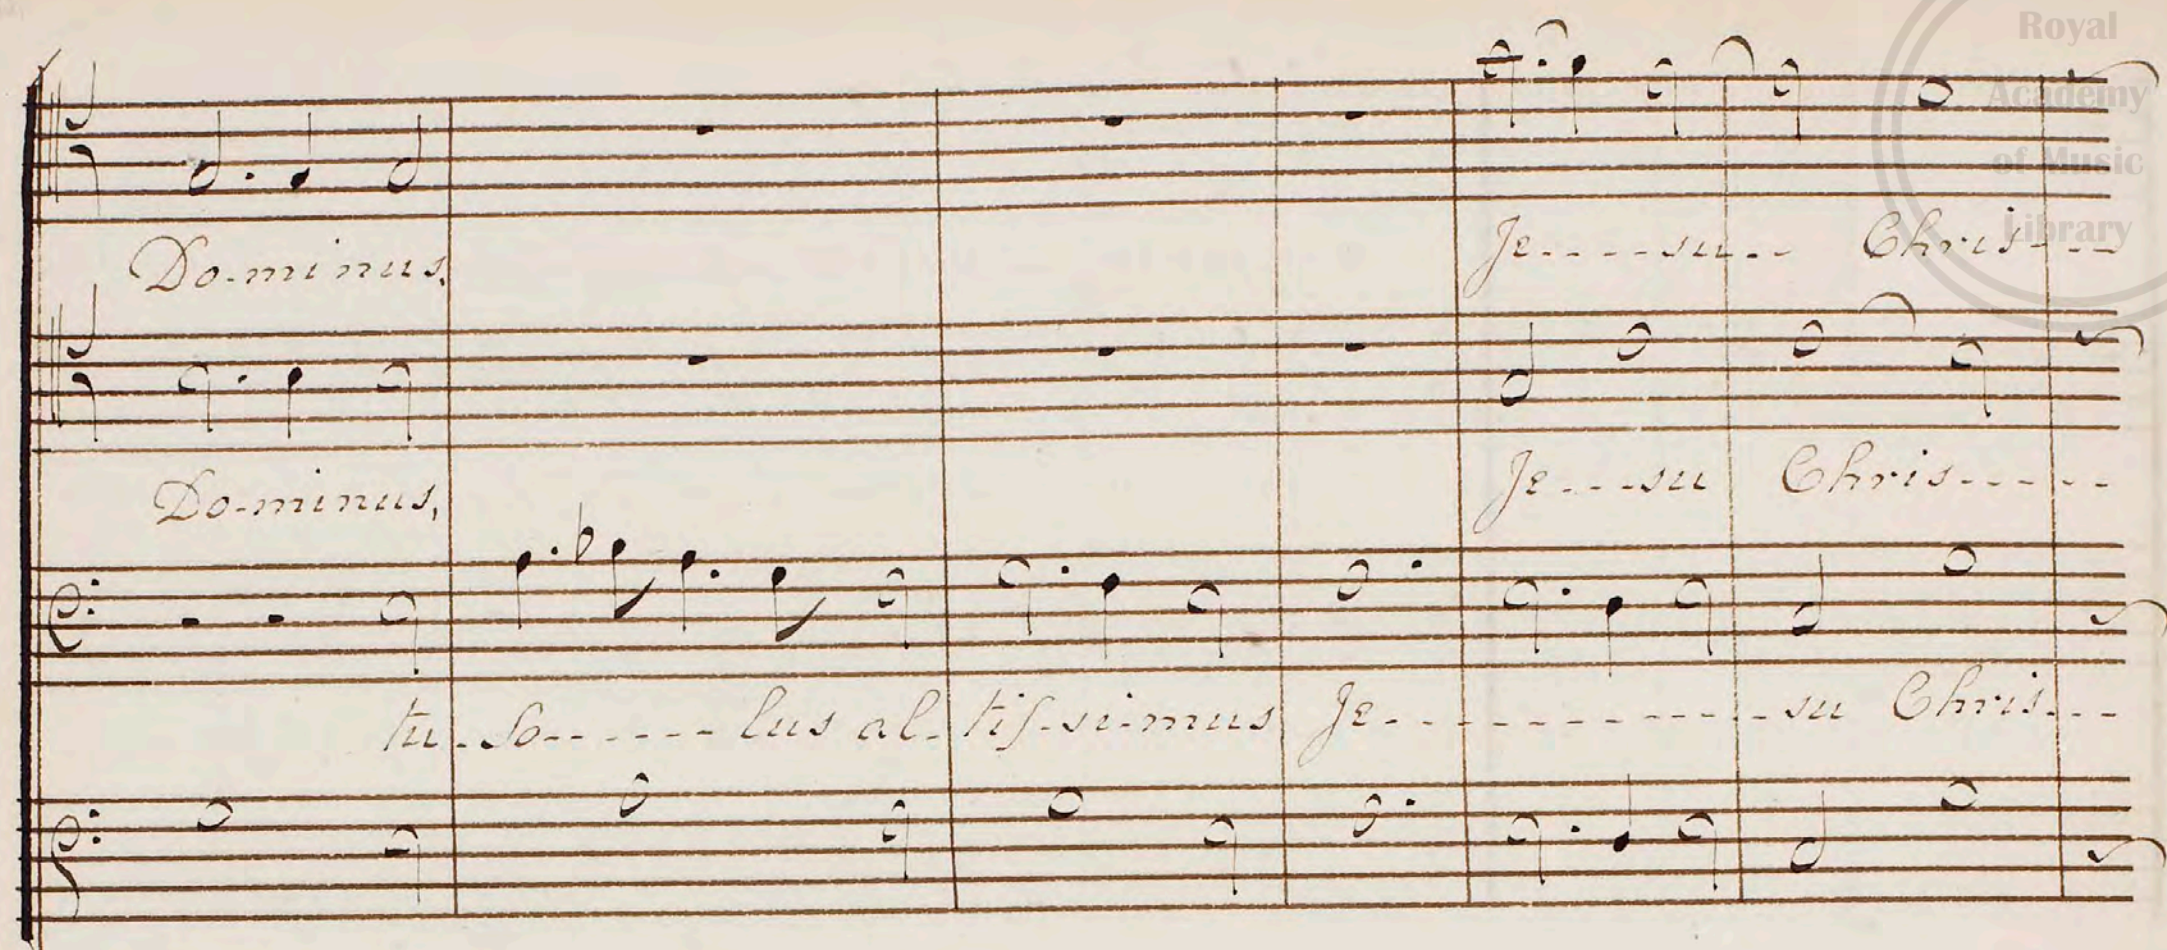 Royal
Academy
of Music
Library
Do-minus. Je-----su-- Chris---
Do-minus, Je---su Chris-----
tu-So------lus al-tiſ-si-mus Je------------su Chris---